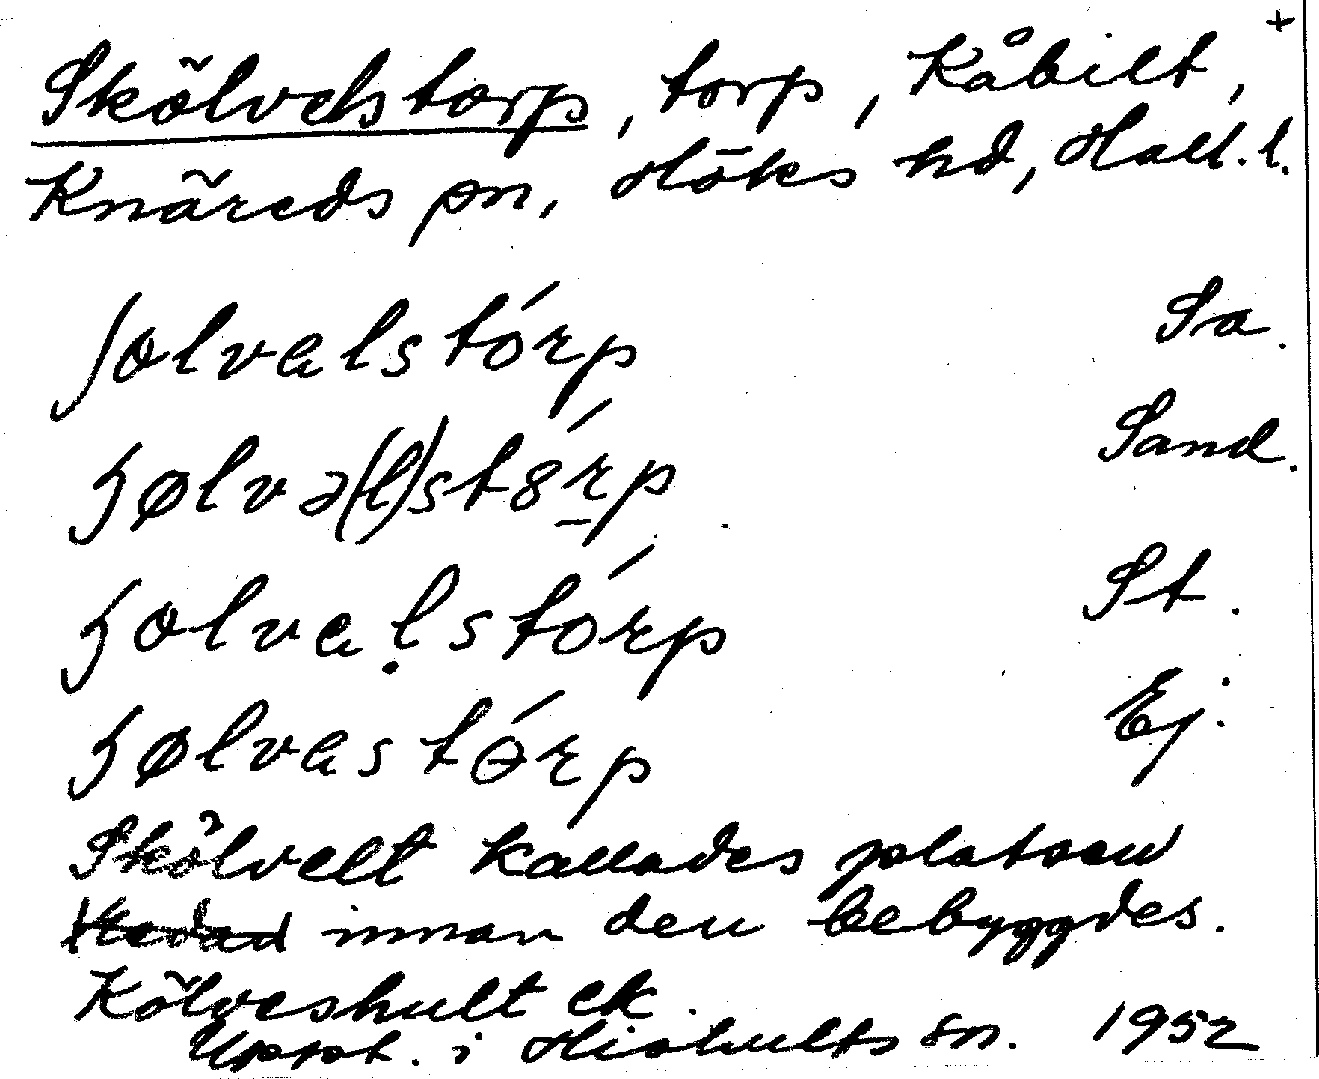 +
Skölvelstorp, torp, Kåbilt,
Knäreds sn, Höks hd, Hall. l.
ʃɵlvalstórp Sa.
ʒølvə(l)st8́rp Sand.
ʒɵlval̩stórp St.
ʒølvastɵ́rp Ej.
Skölvelt kallades platsen
innan den bebyggdes.
Kölveshult ek.
Uppt. i Hishults sn. 1952